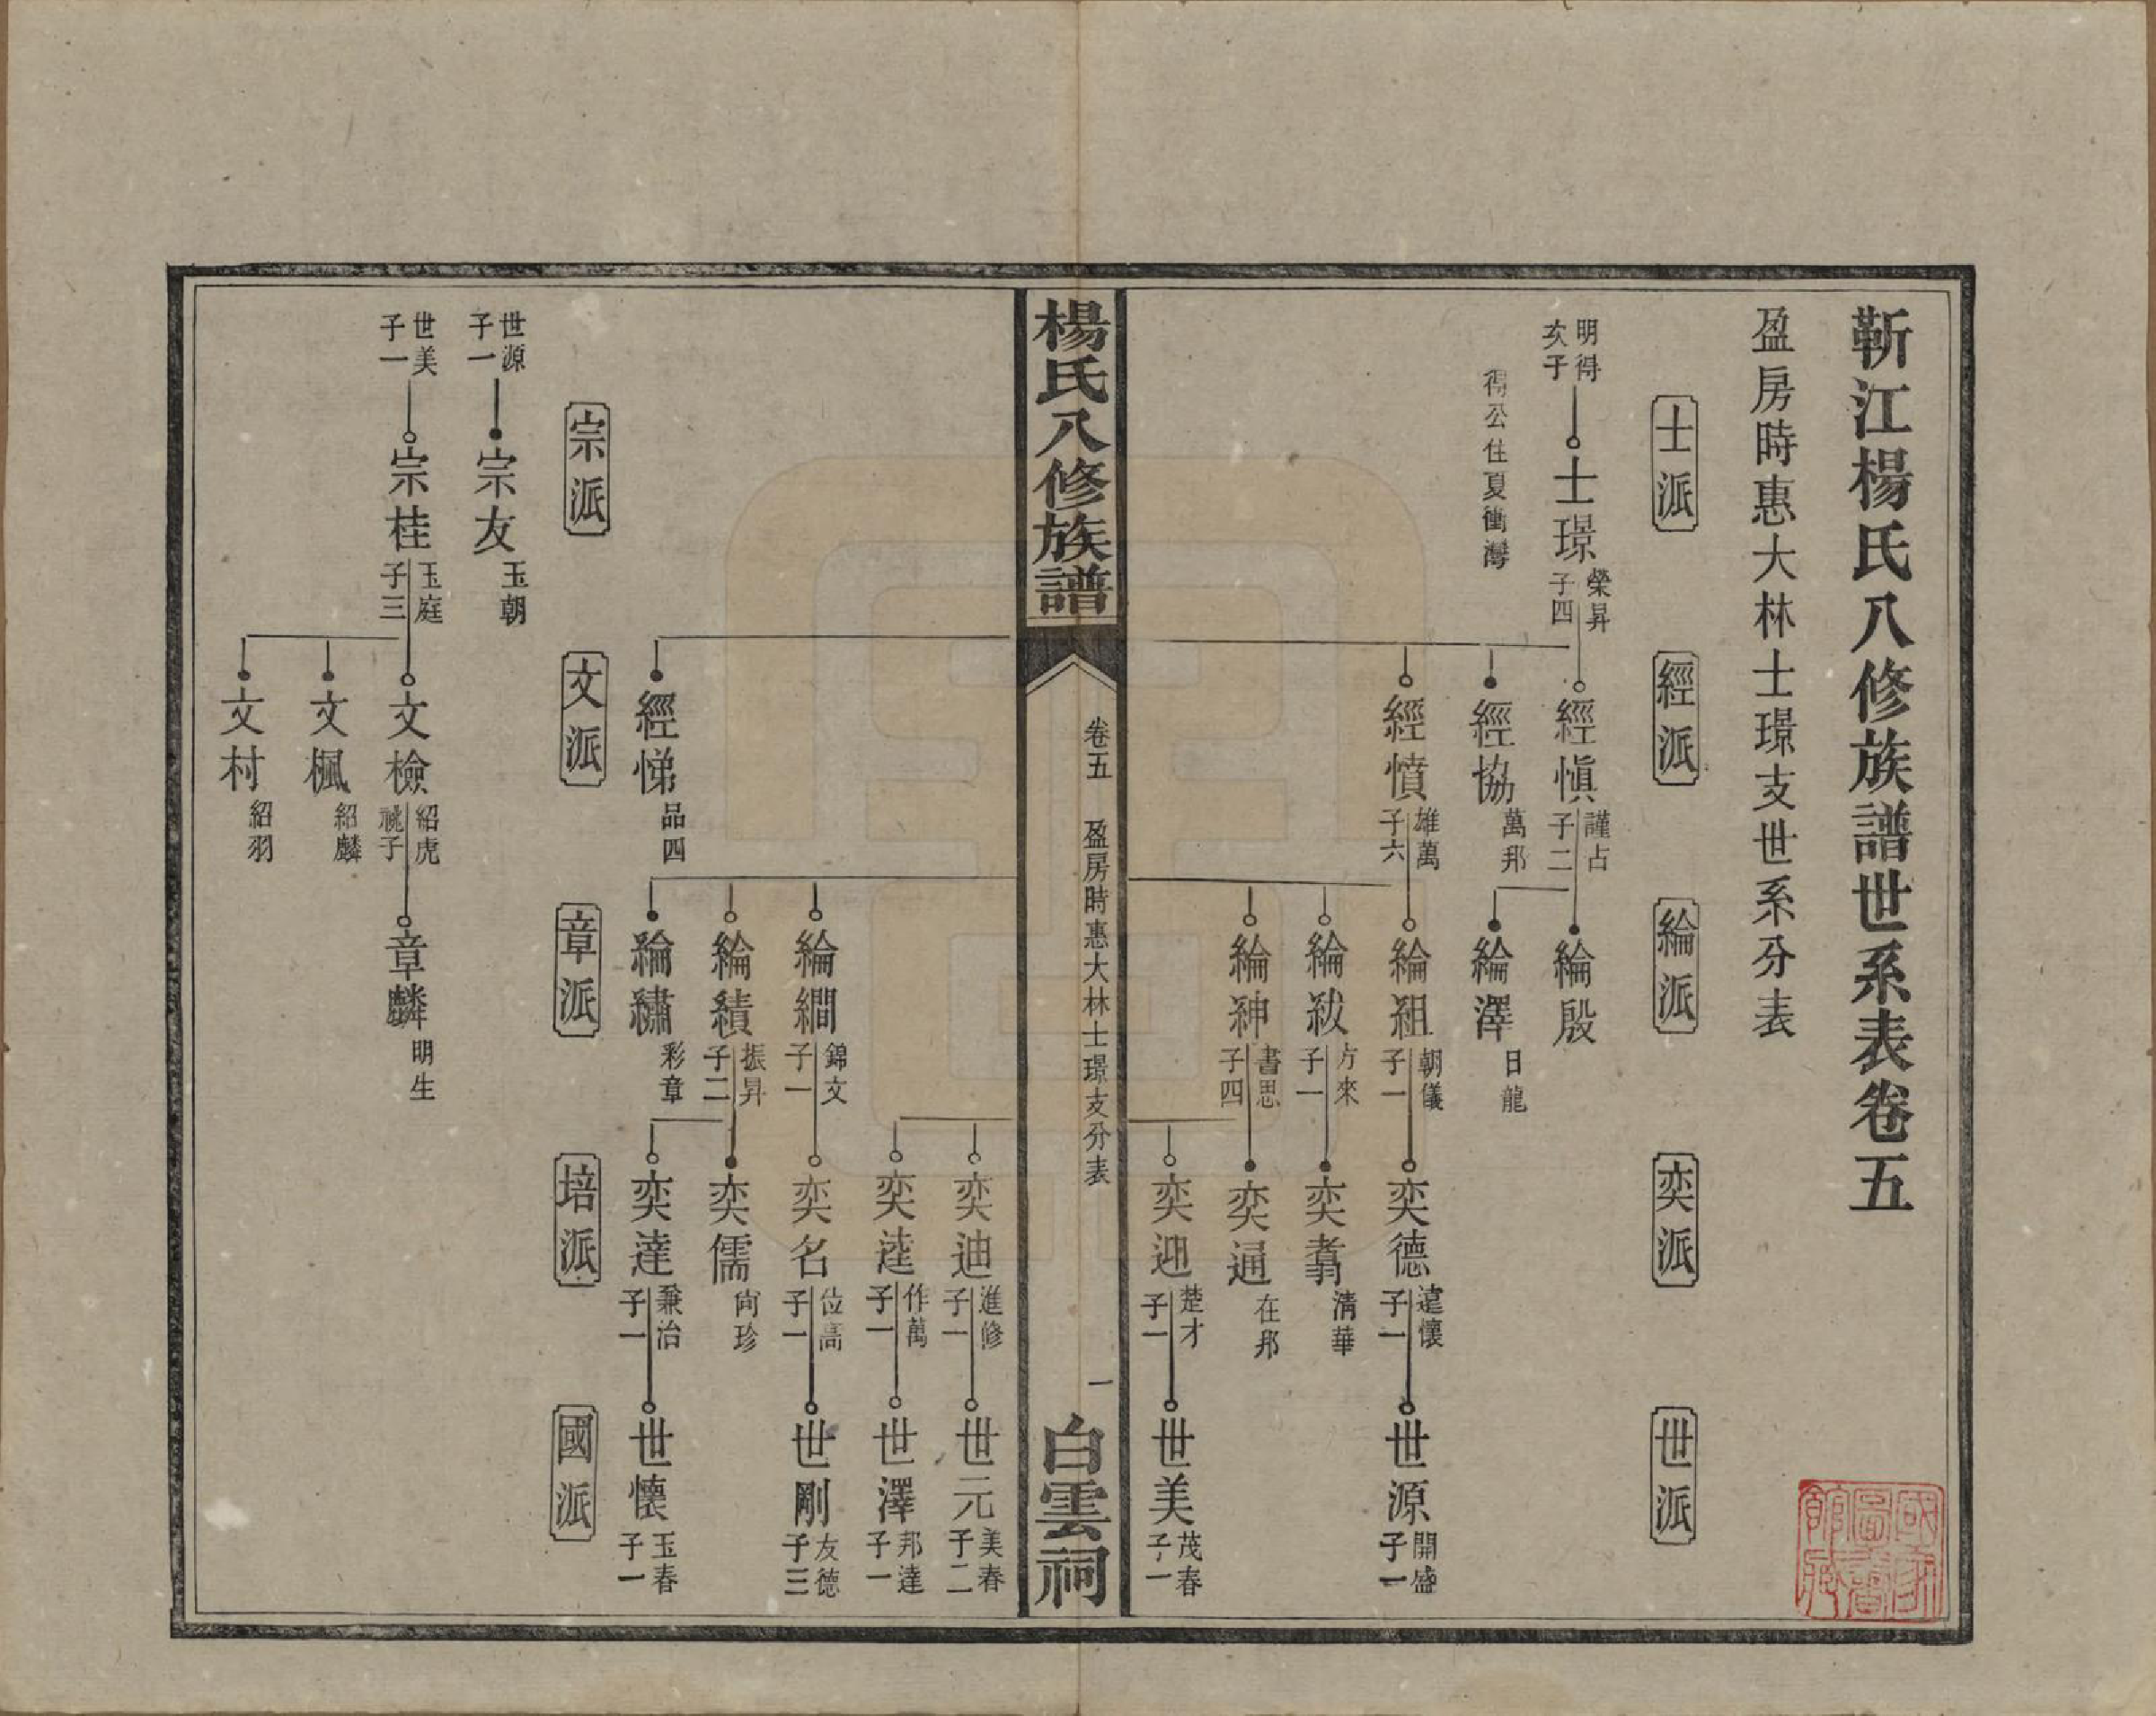 靳江楊氏八修族譜世系表卷五
盈房時惠大林士璟支世系分表
士派
經派
綸派
奕派
世派
明得
次子
士璟
榮昇
子四
得公住夏衝灣
經愼
謹占
子二
綸殷
經協
萬邦
綸澤
日龍
經憤
雄萬
子六
綸祖
朝儀
子一
奕德
遠懷
子一
世源
開盛
子一
綸紱
方來
子一
奕翥
清華
綸紳
書思
子四
奕通
在邦
奕迎
楚才
子一
世美
茂春
子一
楊氏八修族譜
卷五
盈房時惠大林士璟支分表
一
白雲祠
奕迪
進修
子一
世元
美春
子二
奕達
作萬
子一
世澤
邦達
子一
綸繝
錦文
子一
奕名
位高
子一
世剛
友德
子三
綸績
振昇
子二
奕儒
尚珍
經悌
品四
綸繡
彩章
奕達
兼治
子一
世懷
玉春
子一
宗派
文派
章派
培派
國派
世源
子一
宗友
玉朝
世美
子一
宗桂
玉庭
子三
文檢
紹虎
祧子
章麟
明生
文楓
紹麟
文村
紹羽
國家圖書館藏